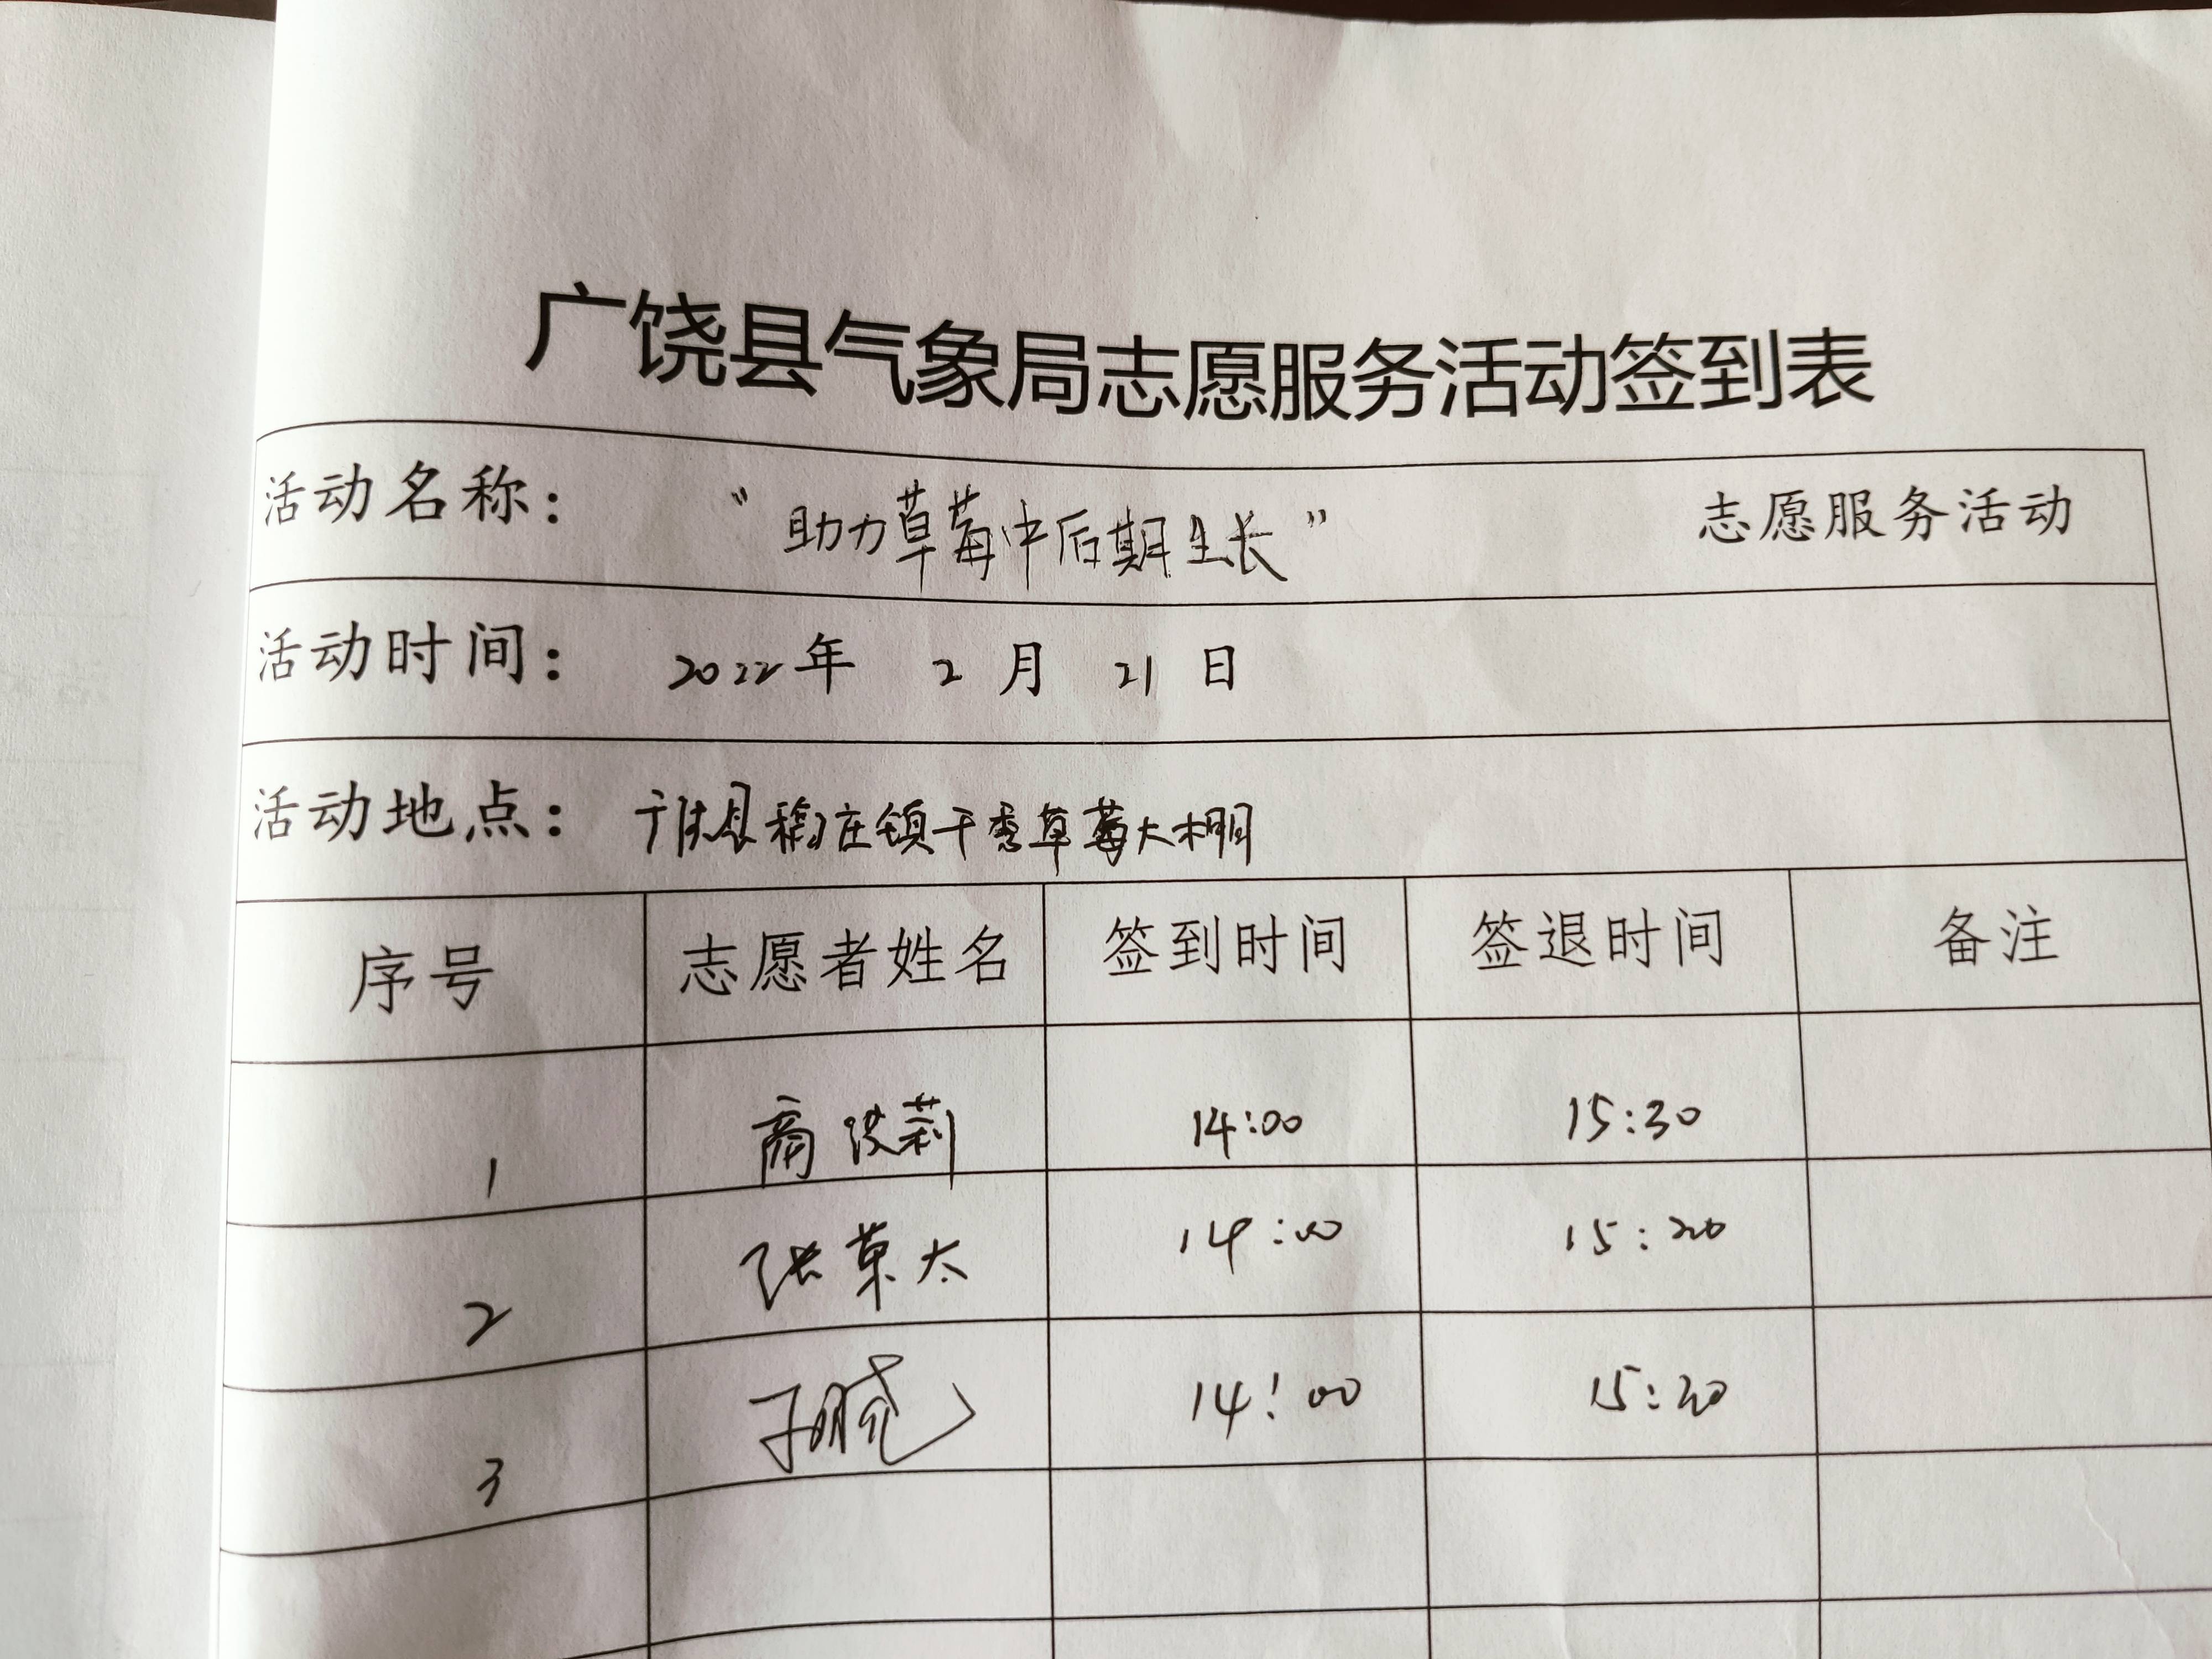 广饶县气象局志愿服务活动签到表
活动名称： “助力草莓中后期生长” 志愿服务活动
活动时间： 2022年 2月 21日
活动地点： 广饶县稻庄镇千秀草莓大棚
序号 志愿者姓名 签到时间 签退时间 备注
1 商 莉 14:00 15:30
2 张 太 14:00 15:20
3 14:00 15:20